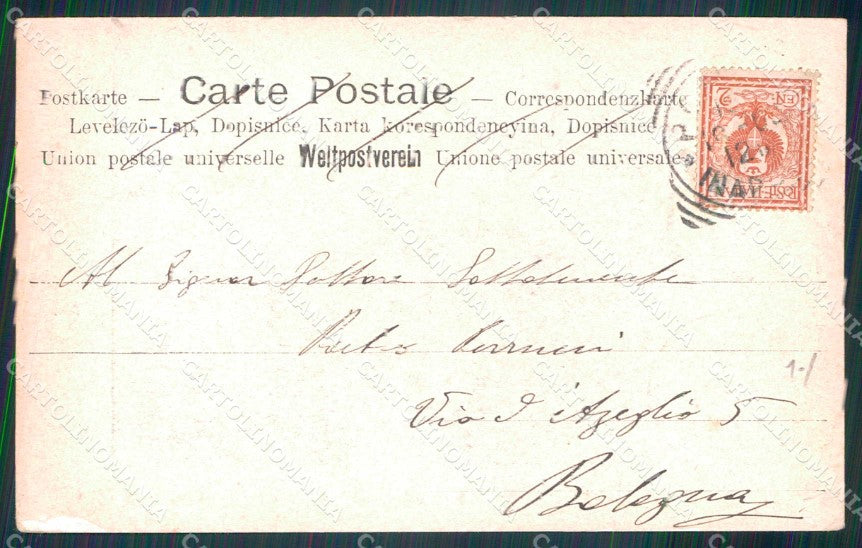 Postkarte — Carte Postale — Correspondenzkarte
Levelező-Lap, Dopisnice, Karta korespondencyjna, Dopisnice
Union postale universelle Weltpostverein Unione postale universale
CEN. 2
POSTE ITALIANE
12
Al Signor Dottore Sottotenente
Via d'Azeglio 5
Bologna
1-/
CARTOLINOMANIA